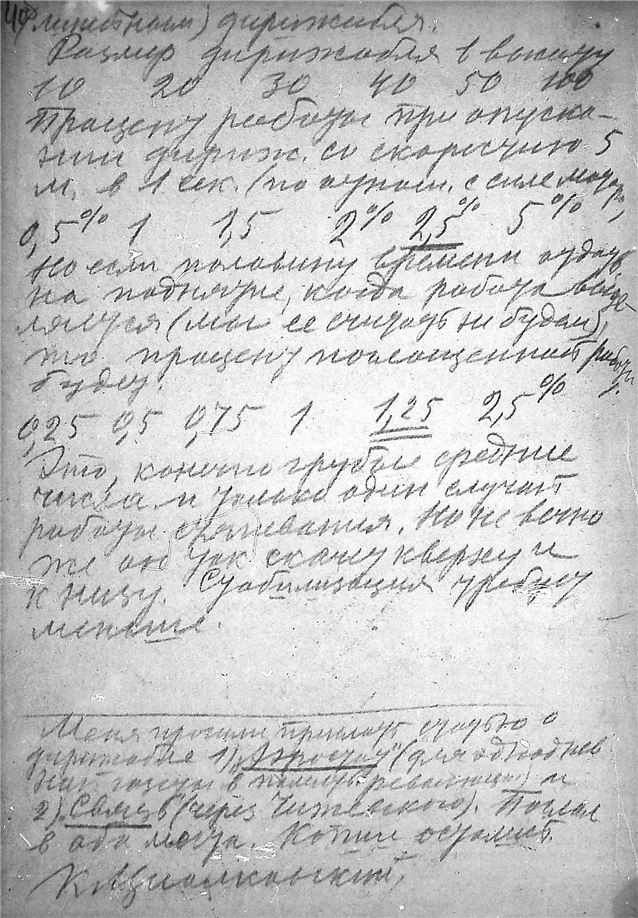 40
дирижабля.
Размер дирижабля в высоту
10 20 30 40 50 100
Процент работы при опуска-
нии дириж. со скоростью 5
м. в 1 сек. (по отнош. с силе мотор.)
0,5% 1 1,5 2% 2,5% 5%
Но если половину времени отдать
на поднятие, когда работа выде-
ляется (мы ее считать не будем),
то процент поглощенной работы
будет:
0,25 0,5 0,75 1 1,25 2,5%
Это, конечно грубые средние
числа и только один случай
работы сжимания. Но не вечно
же он так скачет кверху и
к низу. Стабилизация требует
меньше.
Меня просили прислать статью о
дирижабле 1) (для одноднев
ной газеты в революции) и
2) Связь (через Чижевского). Послал
в оба места. Копии остались.
К.Циолковский